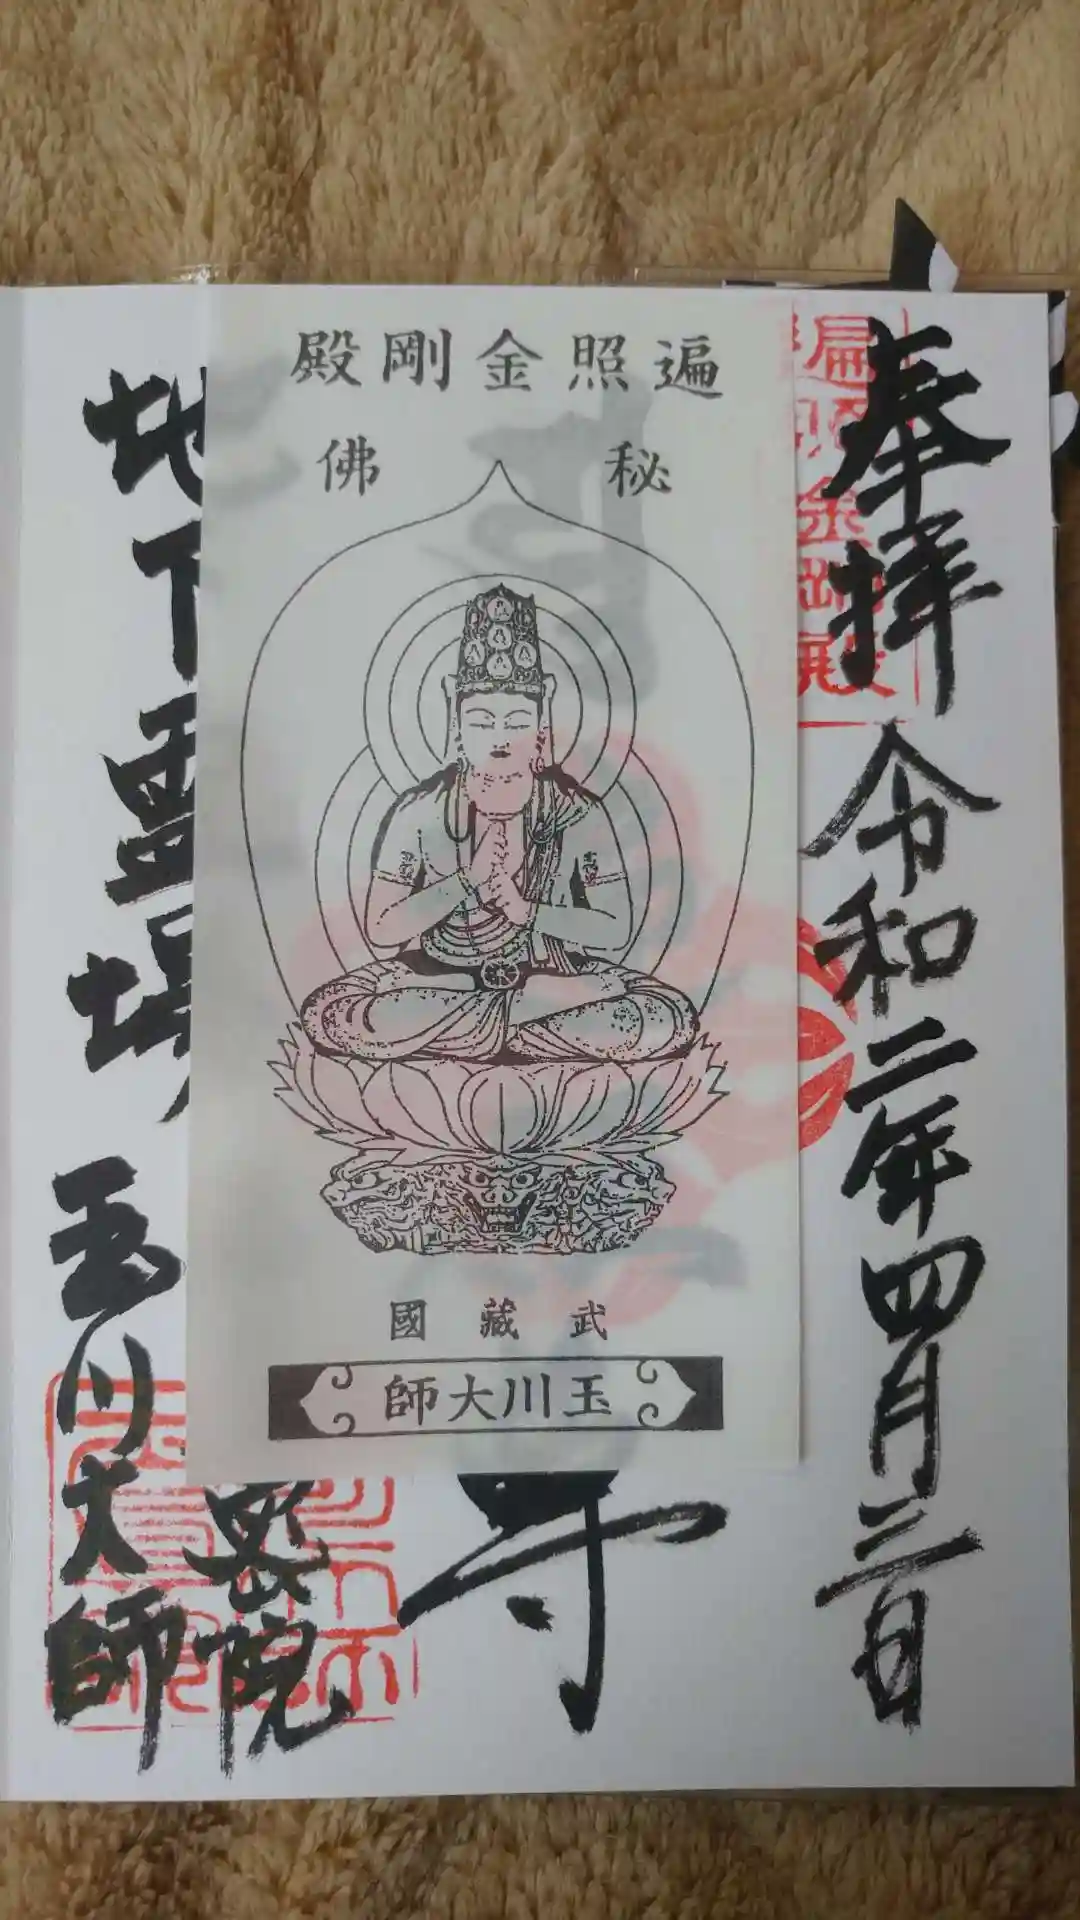 奉拝 令和二年四月二日
遍照金剛殿
遍照金剛殿
秘佛
武藏國
玉川大師
寺
密院
地下霊場 玉川大師